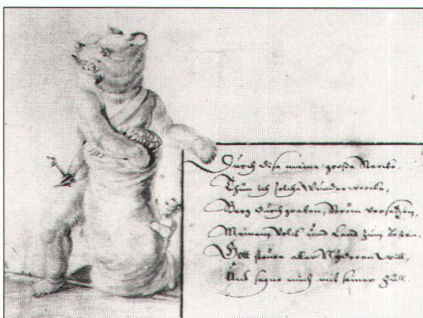 Durch dise meine große Sterke,
Thun ich solche Wunderwerck,
Berg durchgraben, Ström versetzen,
Meinem Volck und Land zum besten.
Gott steuer aller will,
Und segne mich mit seiner Füll.